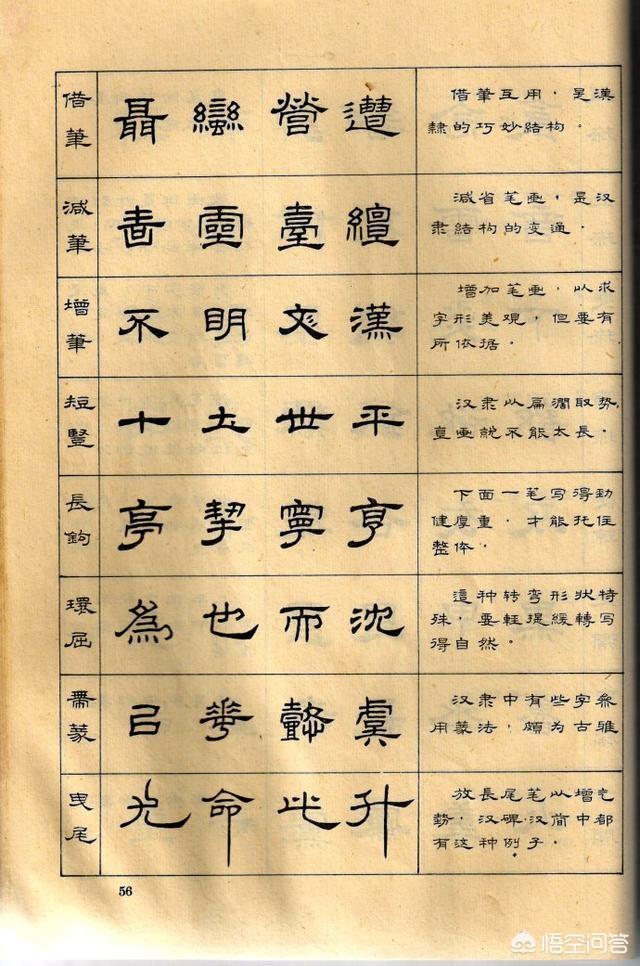 借筆
聶 蠻 營 遭
借筆互用，是漢
隸的巧妙結构。
減筆
書 靈 臺 繵
減省笔画，是汉
隶結构的变通。
增筆
不 明 文 漢
增加笔画，以求
字形美观，但要有
所依据。
短豎
十 土 世 平
汉隶以扁濶取势，
直画就不能太長。
長鉤
亭 挈 寧 亨
下面一笔写得劲
健厚重，才能托住
整体。
環屈
為 也 而 沈
這种转弯形状特
殊，要輕提緩轉写
得自然。
帶篆
己 華 懿 虞
汉隶中有些字参
用篆法，頗为古雅
曳尾
允 命 此 升
放長尾笔以增气
势，汉碑汉简中都
有这种例子。
56
悟空问答